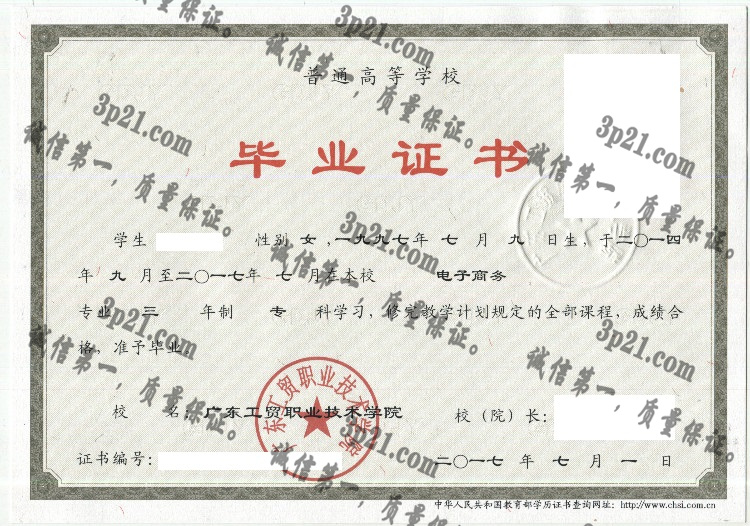 普通高等学校
毕业证书
学生 性别 女,一九九七年 七 月 九 日生,于二〇一四
年 九 月至二〇一七年 七 月在本校 电子商务
专业 三 年制 专 科学习,修完教学计划规定的全部课程,成绩合
格,准予毕业
校 名:广东工贸职业技术学院 校(院)长:
证书编号: 二〇一七 年 七 月 一 日
中华人民共和国教育部学历证书查询网址:http://www.chsi.com.cn
广东工贸职业技术学院
3p21.com
诚信第一,质量保证。
3p21.com
诚信第一,质量保证。
3p21.com
诚信第一,质量保证。
3p21.com
诚信第一,质量保证。
3p21.com
诚信第一,质量保证。
3p21.com
诚信第一,质量保证。
3p21.com
诚信第一,质量保证。